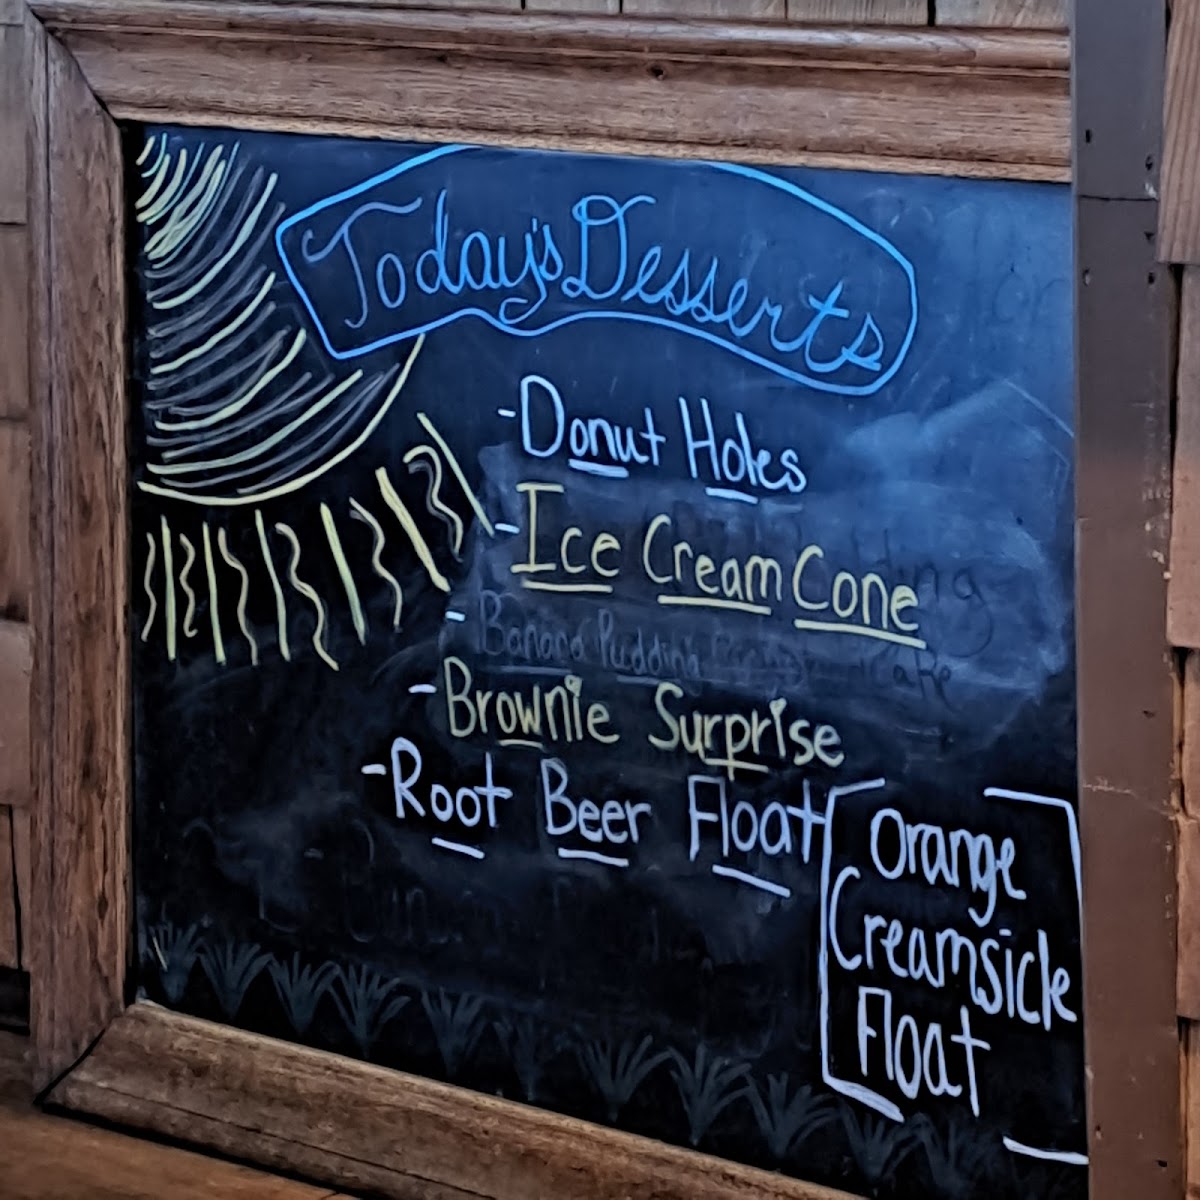 Today's Desserts
- Donut Holes
- Ice Cream Cone
- Banana Pudding
- Brownie Surprise
- Root Beer Float
Orange
Creamsicle
Float